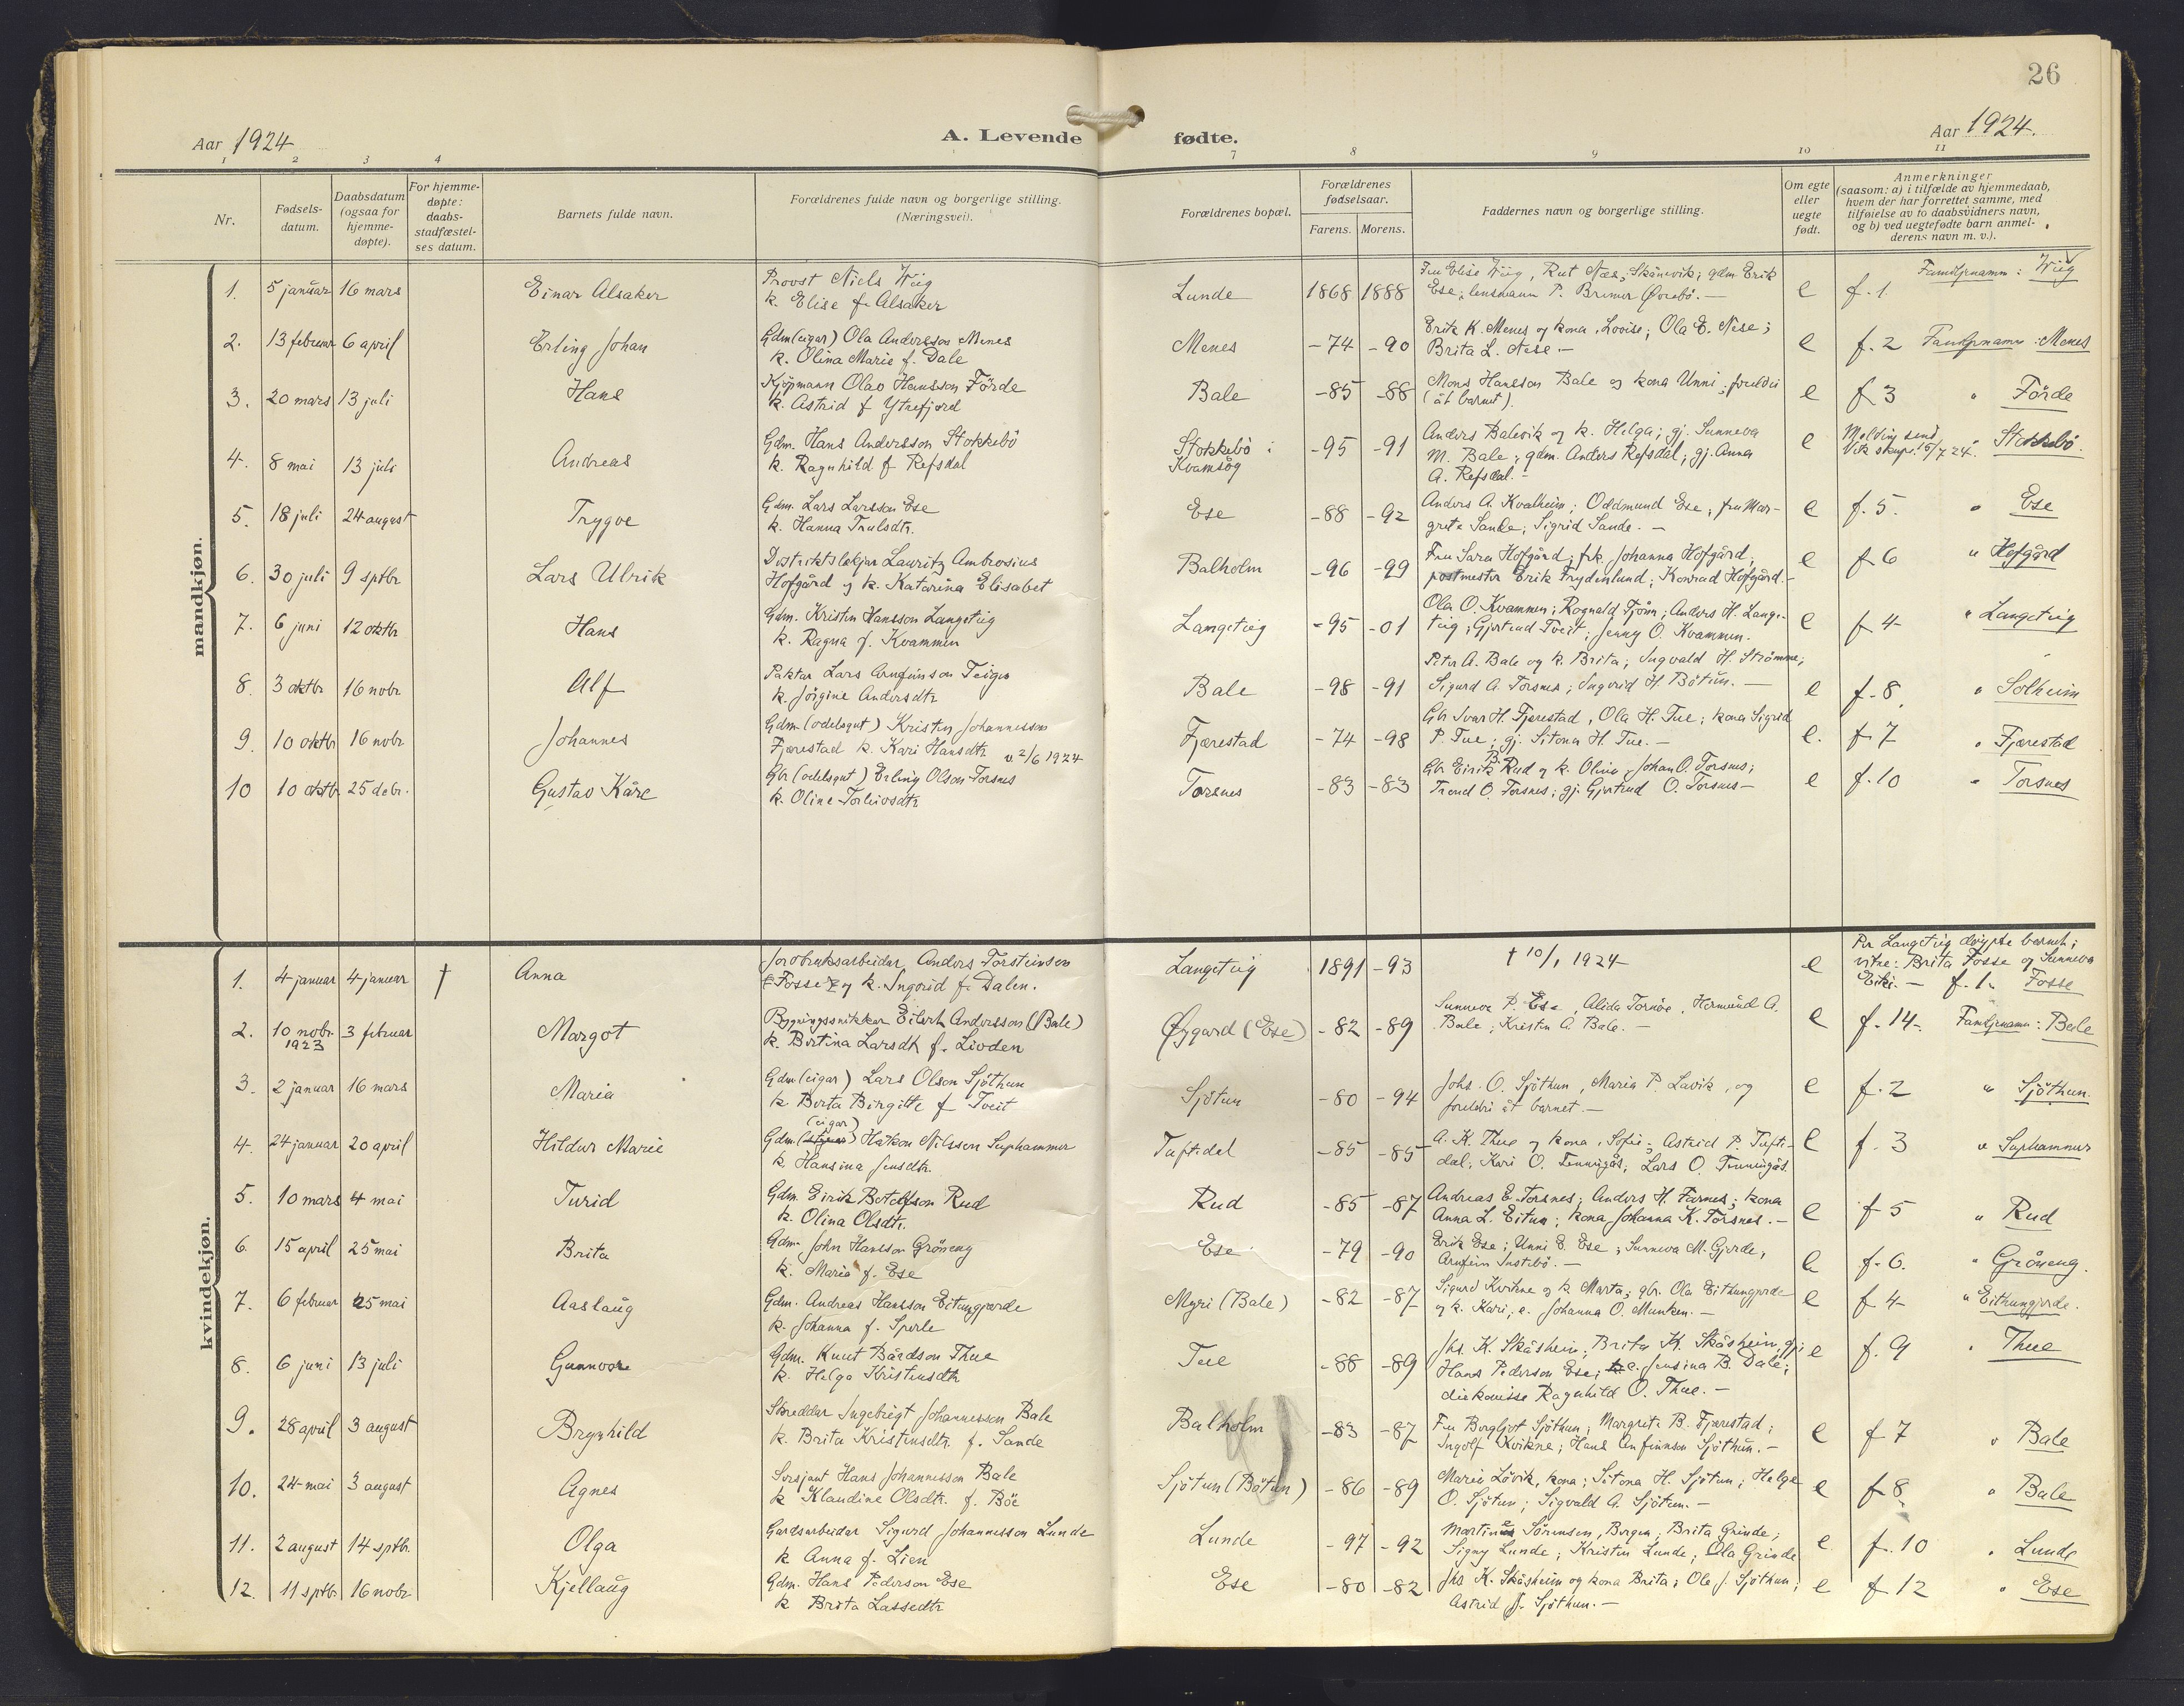 26
Aar 1924
A. Levende fødte.
Aar 1924.
1 2 3 4 7 8 9 10 11
Nr.
Fødsels-
datum.
Daabsdatum
(ogsaa for
hjemme-
døpte).
For hjemme-
døpte:
daabs-
stadfæstel-
ses datum.
Barnets fulde navn.
Forældrenes fulde navn og borgerlige stilling.
(Næringsvei).
Forældrenes bopæl.
Forældrenes
fødselsaar.
Farens. Morens.
Faddernes navn og borgerlige stilling.
Om egte
eller
uegte
født.
Anmerkninger
(saasom: a) i tilfælde av hjemmedaab,
hvem der har forrettet samme, med
tilføielse av to daabsvidners navn,
og b) ved uegtefødte barn anmel-
derens navn m. v.).
mandkjøn.
1. 5 januar 16 mars Einar Alsaker
Provst Niels Wiig
k. Elise f. Alsaker
Lunde 1868 1888
Fru Elise Wiig, Rut Næs, Skånevik; gdm Erik
Ese; lensmann P. Brimer Øvrebö. –
e f. 1. Familjenamn: Wiig
2. 13 februar 6 april Erling Johan
Gdm (eigar) Ola Andersson Menes
k. Olina Marie f. Dale
Menes -74 -90
Erik K. Menes og kona Lovise; Ola E. Nese;
Brita L. Nese –
e f. 2 Familjenamn: Menes
3. 20 mars 13 juli Hans
Kjöpmann Olav Hansson Förde
k. Astrid f Ytrefjord
Bale -85 -88
Mons Hansson Bale og kona Unni; foreldri
(åt barnet).
e f 3 " Förde
4. 8 mai 13 juli Andreas
Gdm. Hans Andersson Stokkebö
k. Ragnhild f Refsdal
Stokkebö i
Kvamsöy
-95 -91
Anders Balevik og k. Helga; gj. Sunneva
M. Bale; gdm. Anders Refsdal; gj. Anna
A. Refsdal. –
e Melding send
Vik 15/7 24. " Stokkebö.
5. 18 juli 24 august Trygve
Gdm. Lars Larsson Ese
k. Hanna Trulsdtr.
Ese -88 -92
Anders A. Kvalheim; Oddmund Ese; fru Mar-
grete Sande; Sigrid Sande. –
e f. 5. " Ese
6. 30 juli 9 septbr Lars Ulrik
Distriktslækjar Lauritz Ambrosius
Hofgård og k. Katarina Elisabet
Balholm -96 -99
Fru Sara Hofgård; frk. Johanna Hofgård;
postmester Erik Frydenlund; Konrad Hofgård. –
e f 6 " Hofgård
7. 6 juni 12 oktbr Hans
Gdm. Kristen Hansson Langeteig
k. Ragna f. Kvammen
Langeteig -95 -01
Ola O. Kvammen; Ragnald Tjönn; Anders H. Lange-
teig; Gjertrud Tveit; Jenny O. Kvammen.
e f 4 " Langeteig
8. 3 oktbr 16 nobr Alf
Paktar Lars Arnfinnson Teigen
k. Jörgine Andersdtr
Bale -98 -91
Peter A. Bale og k. Brita; Ingvald H. Strömme;
Sigurd A. Torsnes; Ingvrid H. Bötun. –
e f. 8 " Solheim
9. 10 oktbr 16 nobr Johannes
Gdm. (odelsgut) Kristen Johannesson
Fjærestad k. Kari Hansdtr v. 2/6 1924
Fjærestad -74 -98
Gbr Ivar H. Fjærestad, Ola H. Tue; kona Sigrid
P. Tue; gj. Sitona H. Tue. –
e. f. 7 " Fjærestad
10 10 oktbr. 25 debr. Gustav Kåre
Gbr (odelsgut) Erling Olson Torsnes
k. Oline Torleivsdtr
Torsnes -83 -83
Gbr Eirik B. Rud og k. Olina; Johan O. Torsnes;
Trond O. Torsnes; gj. Gjertrud O. Torsnes –
e f. 10 " Torsnes
kvindekjøn.
1. 4 januar 4 januar † Anna
Jordbruksarbeidar Anders Torsteinson
(Fosse) og k. Ingvrid f. Dalen.
Langeteig 1891 -93
† 10/1 1924
e Per Langeteig döypte barnet;
vitne: Brita Fosse og Sunneva
Eiki. – f. 1. Fosse
2. 10 nobr. 3 februar Margot
1923
Bygningssnikkar Eilert Andersson (Bale)
k. Bertina Larsdtr f. Livden
Øygard (Ese) -82 -89
Sunneva P. Ese, Alida Tornöe, Hermund A.
Bale; Kristen A. Bale. –
e f. 14. Familjenamn: Bale
3. 2 januar 16 mars Maria
Gdm (eigar) Lars Olson Sjöthun
k Berta Birgitte f Tveit
Sjötun -80 -94
Johs. O. Sjöthun, Maria P. Lavik, og
foreldri åt barnet. –
e f. 2 " Sjöthun.
4. 24 januar 20 april Hildur Marie
(eigar)
Gdm. Håkon Nilsson Suphammer
k. Hansina Jensdtr.
Tuftedal -85 -85
A. K. Thue og kona, Sofie; Astrid P. Tufte-
dal; Kari O. Tenningås; Lars O. Tenningås.
e f. 3 " Suphammer
5. 10 mars 4 mai Turid
Gdm. Eirik Botolfson Rud
k. Olina Olsdtr.
Rud -85 -87
Andreas E. Torsnes; Anders H. Farnes; kona
Anna L. Eitun; kona Johanna K. Torsnes. –
e f 5 " Rud
6. 15 april 25 mai Brita
Gdm. John Hansson Gröneng
k. Maria f. Ese
Ese -79 -90
Erik Ese; Unni E. Ese; Sunneva M. Gjerde;
Arnfinn Instebö. –
e f. 6. " Gröneng.
7. 6 februar 25 mai Aaslaug
Gdm. Andreas Hansson Eitungjerde
k. Johanna f. Sperle
Myri (Bale) -82 -87
Sigurd Kvikne og k Marta; gbr. Ola Eithungjerde
og k. Kari; e. Johanna O. Munken. –
e f 4 " Eithungjerde.
8. 6 juni 13 juli Gunnvor
Gdm. Knut Bårdson Thue
k. Helga Kristensdtr
Tue -88 -89
Jhs. K. Skåsheim; Brita K. Skåsheim, gj;
Hans Pederson Ese; e. Jensina B. Dale;
diakonisse Ragnhild O. Thue. –
e f. 9 " Thue
9. 28 april 3 august Brynhild
Skreddar Ingebrigt Johannesson Bale
k. Brita Kristensdtr. f. Sande
Balholm -83 -87
Fru Borgljot Sjöthun; Margrete B. Fjærestad;
Ingolf Kvikne; Hans Arnfinnson Sjöthun. –
e f 7 " Bale
10. 24 mai 3 august Agnes
Sersjant Hans Johannesson Bale
k Klaudine Olsdtr. f. Böe
Sjötun (Bötun) -86 -89
Maria Lövik, kona; Sitona H. Sjötun; Helge
O. Sjötun; Sigvald A. Sjötun. –
e f 8 " Bale
11. 2 august 14 sptbr. Olga
Gardsarbeidar Sigurd Johannesson Lunde
k Anna f. Lien
Lunde -97 -92
Martine Sörensen, Bergen; Brita Grinde;
Signy Lunde; Kristen Lunde; Ola Grinde
e f. 10 " Lunde
12. 11 sptbr. 16 nobr Kjellaug
Gdm. Hans Pederson Ese
k Brita Lassedtr
Ese -80 -82
Jhs K. Skåsheim og kona Brita; Ole J. Sjöthun;
Astrid J. Sjöthun. –
e f 12 " Ese